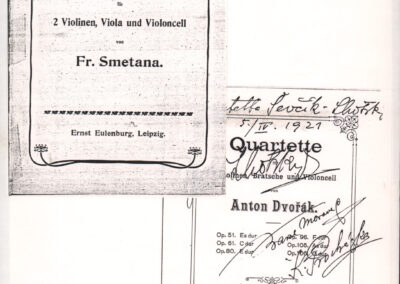 für
2 Violinen, Viola und Violoncell
von
Fr. Smetana.
Ernst Eulenburg, Leipzig.
Ševčík - Lhotský
5/IV. 1921
Quartette
Lhotský
Bratsche und Violoncell
von
Anton Dvořák.
Op. 51. Es dur
Op. 61. C dur
Op. 80. E dur
Op. 96. F dur
Op. 105. As dur
Op. 106.